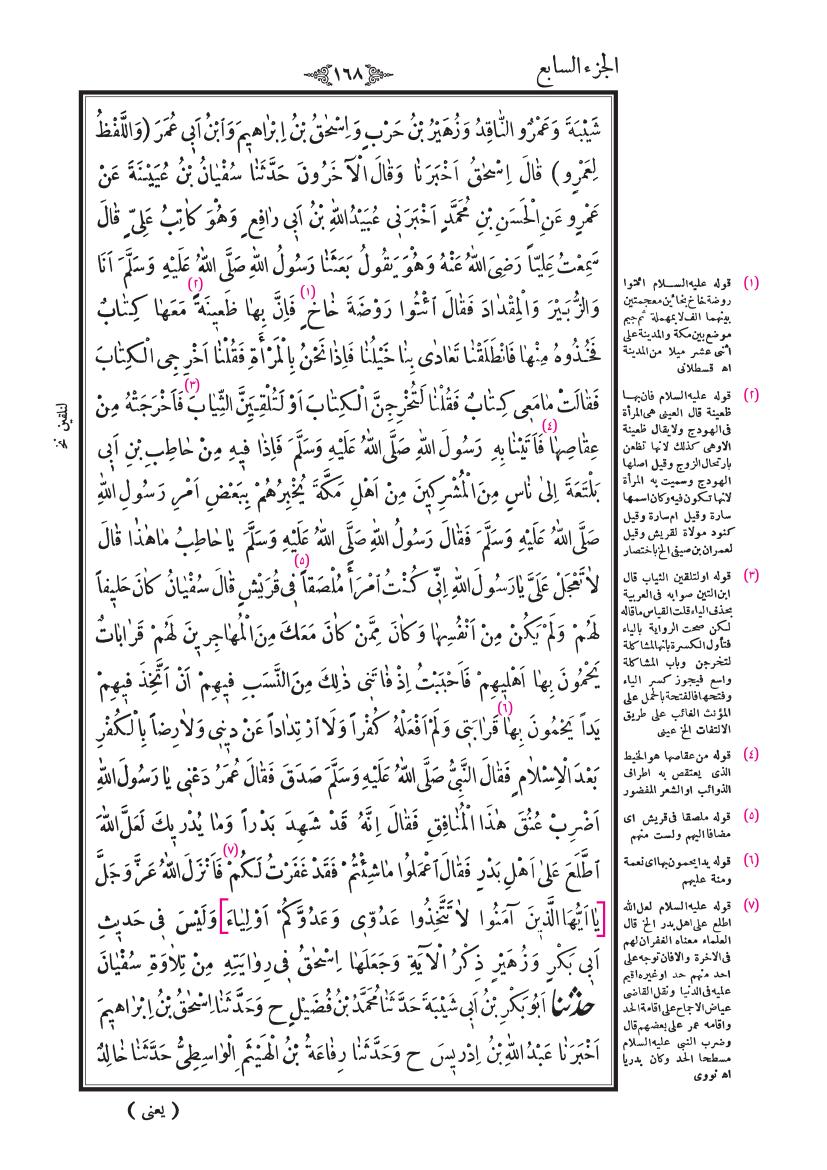 الجزء السابع
١٦٨
شَيْبَةَ وَعَمْرٌو النَّاقِدُ وَزُهَيْرُ بْنُ حَرْبٍ وَاِسْحٰقُ بْنُ اِبْرٰاهِيمَ وَابْنُ اَبِى عُمَرَ (وَاللَّفْظُ
لِعَمْرٍو) قٰالَ اِسْحٰقُ اَخْبَرَنٰا وَقٰالَ الْآخَرُونَ حَدَّثَنٰا سُفْيٰانُ بْنُ عُيَيْنَةَ عَنْ
عَمْرٍو عَنِ الْحَسَنِ بْنِ مُحَمَّدٍ اَخْبَرَنِى عُبَيْدُاللّٰهِ بْنُ اَبِى رٰافِعٍ وَهُوَ كٰاتِبُ عَلِىٍّ قٰالَ
سَمِعْتُ عَلِيّاً رَضِىَ اللّٰهُ عَنْهُ وَهُوَ يَقُولُ بَعَثَنٰا رَسُولُ اللّٰهِ صَلَّى اللّٰهُ عَلَيْهِ وَسَلَّمَ اَنَا
وَالزُّبَيْرَ وَالْمِقْدٰادَ فَقٰالَ ائْتُوا رَوْضَةَ خٰاخٍ (١) فَاِنَّ بِهٰا ظَعِينَةً (٢) مَعَهٰا كِتٰابٌ
فَخُذُوهُ مِنْهٰا فَانْطَلَقْنٰا تَعٰادٰى بِنٰا خَيْلُنٰا فَاِذٰا نَحْنُ بِالْمَرْأَةِ فَقُلْنٰا اَخْرِجِى الْكِتٰابَ
فَقٰالَتْ مٰا مَعِى كِتٰابٌ فَقُلْنٰا لَتُخْرِجِنَّ الْكِتٰابَ اَوْ لَتُلْقِيَنَّ الثِّيٰابَ (٣) فَاَخْرَجَتْهُ مِنْ
عِقٰاصِهٰا (٤) فَاَتَيْنٰا بِهِ رَسُولَ اللّٰهِ صَلَّى اللّٰهُ عَلَيْهِ وَسَلَّمَ فَاِذٰا فِيهِ مِنْ حٰاطِبِ بْنِ اَبِى
بَلْتَعَةَ اِلىٰ نٰاسٍ مِنَ الْمُشْرِكِينَ مِنْ اَهْلِ مَكَّةَ يُخْبِرُهُمْ بِبَعْضِ اَمْرِ رَسُولِ اللّٰهِ
صَلَّى اللّٰهُ عَلَيْهِ وَسَلَّمَ فَقٰالَ رَسُولُ اللّٰهِ صَلَّى اللّٰهُ عَلَيْهِ وَسَلَّمَ يٰا حٰاطِبُ مٰا هٰذٰا قٰالَ
لٰا تَعْجَلْ عَلَىَّ يٰا رَسُولَ اللّٰهِ اِنِّى كُنْتُ امْرَأً مُلْصَقاً (٥) فِى قُرَيْشٍ قٰالَ سُفْيٰانُ كٰانَ حَلِيفاً
لَهُمْ وَلَمْ يَكُنْ مِنْ اَنْفُسِهٰا وَكٰانَ مِمَّنْ كٰانَ مَعَكَ مِنَ الْمُهٰاجِرِينَ لَهُمْ قَرٰابٰاتٌ
يَحْمُونَ بِهٰا اَهْلِيهِمْ فَاَحْبَبْتُ اِذْ فٰاتَنِى ذٰلِكَ مِنَ النَّسَبِ فِيهِمْ اَنْ اَتَّخِذَ فِيهِمْ
يَداً يَحْمُونَ بِهٰا (٦) قَرٰابَتِى وَلَمْ اَفْعَلْهُ كُفْراً وَلَا ارْتِدٰاداً عَنْ دِينِى وَلٰا رِضاً بِالْكُفْرِ
بَعْدَ الْاِسْلٰامِ فَقٰالَ النَّبِىُّ صَلَّى اللّٰهُ عَلَيْهِ وَسَلَّمَ صَدَقَ فَقٰالَ عُمَرُ دَعْنِى يٰا رَسُولَ اللّٰهِ
اَضْرِبْ عُنُقَ هٰذَا الْمُنٰافِقِ فَقٰالَ اِنَّهُ قَدْ شَهِدَ بَدْراً وَمٰا يُدْرِيكَ لَعَلَّ اللّٰهَ
اطَّلَعَ عَلىٰ اَهْلِ بَدْرٍ فَقٰالَ اعْمَلُوا مٰا شِئْتُمْ فَقَدْ غَفَرْتُ لَكُمْ (٧) فَاَنْزَلَ اللّٰهُ عَزَّ وَجَلَّ
[يٰا اَيُّهَا الَّذِينَ آمَنُوا لٰا تَتَّخِذُوا عَدُوِّى وَعَدُوَّكُمْ اَوْلِيٰاءَ] وَلَيْسَ فِى حَدِيثِ
اَبِى بَكْرٍ وَزُهَيْرٍ ذِكْرُ الْآيَةِ وَجَعَلَهٰا اِسْحٰقُ فِى رِوٰايَتِهِ مِنْ تِلٰاوَةِ سُفْيٰانَ
حدثنا اَبُوبَكْرِ بْنُ اَبِى شَيْبَةَ حَدَّثَنٰا مُحَمَّدُ بْنُ فُضَيْلٍ ح وَحَدَّثَنٰا اِسْحٰقُ بْنُ اِبْرٰاهِيمَ
اَخْبَرَنٰا عَبْدُ اللّٰهِ بْنُ اِدْرِيسَ ح وَحَدَّثَنٰا رِفٰاعَةُ بْنُ الْهَيْثَمِ الْوٰاسِطِىُّ حَدَّثَنٰا خٰالِدٌ
( يعنى )
لتلقين نخ
(١) قوله عليه السلام ائتوا
روضة خاخ بخائين معجمتين
بينهما الف لا بمهملة ثم جيم
موضع بين مكة والمدينة على
اثنى عشر ميلا من المدينة
اه قسطلانى
(٢) قوله عليه السلام فان بها
ظعينة قال العينى هى المرأة
فى الهودج ولا يقال ظعينة
الا وهى كذلك لانها تظعن
بارتحال الزوج وقيل اصلها
الهودج وسميت به المرأة
لانها تكون فيه وكان اسمها
سارة وقيل ام سارة وقيل
كنود مولاة لقريش وقيل
لعمران بن صيفى الخ باختصار
(٣) قوله او لتلقين الثياب قال
ابن التين صوابه فى العربية
بحذف الياء قلت القياس ما قاله
لكن صحت الرواية بالياء
فتأول الكسرة بانها لمشاكلة
لتخرجن وباب المشاكلة
واسع فيجوز كسر الياء
وفتحها فالفتحة بالحمل على
المؤنث الغائب على طريق
الالتفات الخ عينى
(٤) قوله من عقاصها هو الخيط
الذى يعتقص به اطراف
الذوائب او الشعر المضفور
(٥) قوله ملصقا فى قريش اى
مضافا اليهم ولست منهم
(٦) قوله يدا يحمون بها اى نعمة
ومنة عليهم
(٧) قوله عليه السلام لعل الله
اطلع على اهل بدر الخ قال
العلماء معناه الغفران لهم
فى الاخرة والا فان توجه على
احد منهم حد او غيره اقيم
عليه فى الدنيا ونقل القاضى
عياض الاجماع على اقامة الحد
واقامه عمر على بعضهم قال
وضرب النبى عليه السلام
مسطحا الحد وكان بدريا
اه نووى